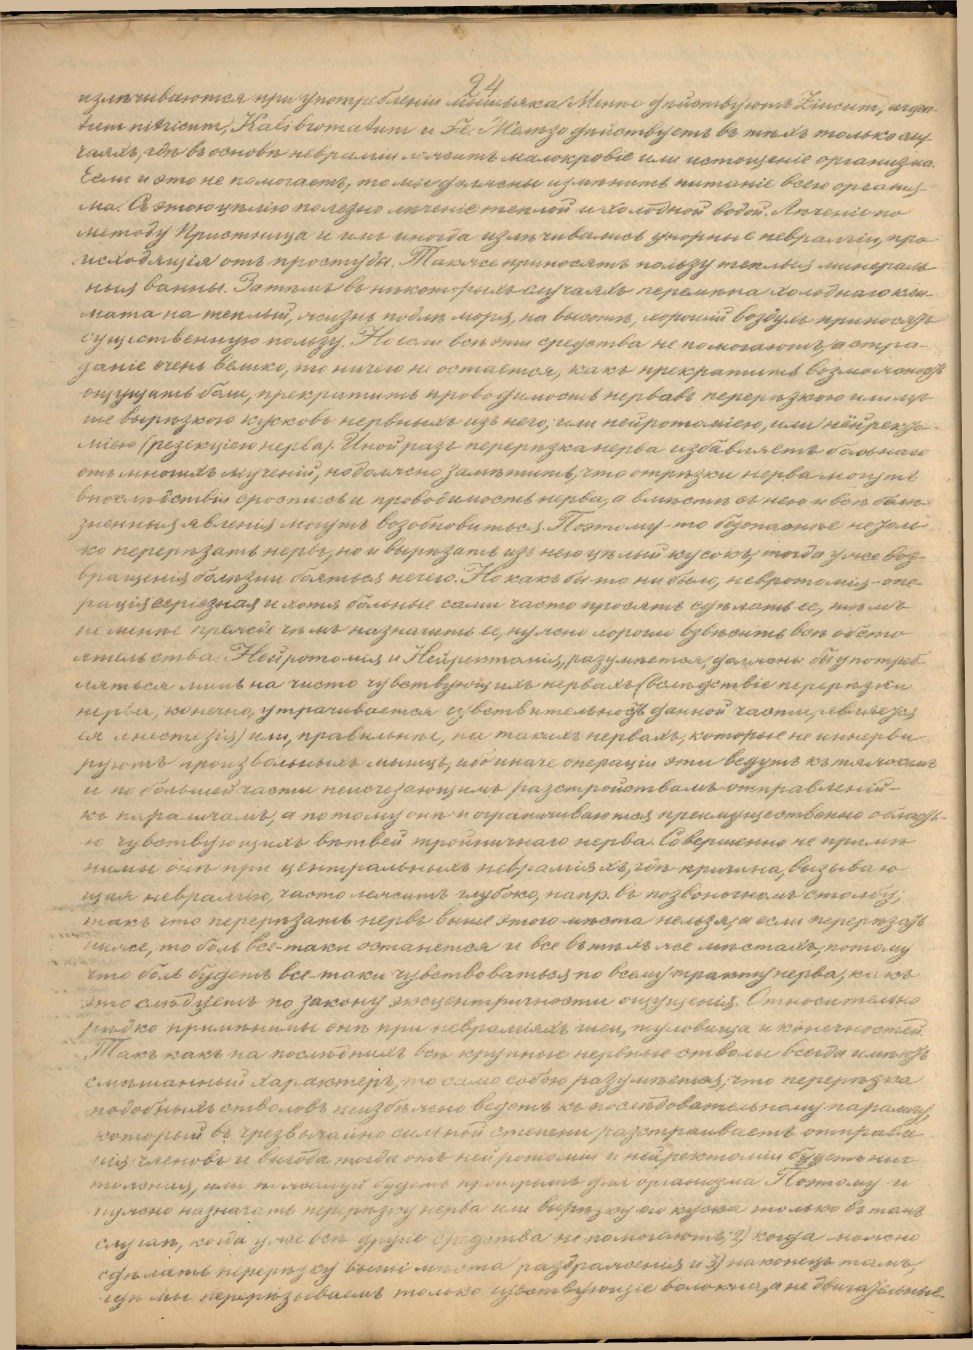 24
излѣчиваются при употребленіи мышьяка. Менѣе дѣйствуютъ Zincum, argen-
tum nitricum, Kali bromatum и Fe. Желѣзо дѣйствуетъ въ тѣхъ только слу-
чаяхъ, гдѣ въ основѣ невралгіи лежитъ малокровіе или истощеніе организма.
Если и это не помогаетъ, то мы должны измѣнить питаніе всего организ-
ма. Съ этою цѣлію полезно лѣченіе теплой и холодной водой. Лѣченіе по
методу Пристница и имъ иногда излѣчивались упорные невралгіи, про-
исходящія отъ простуды. Также приносятъ пользу теплыя минераль-
ныя ванны. Затѣмъ въ нѣкоторыхъ случаяхъ перемѣна холоднаго кли-
мата на теплый, жизнь подлѣ моря, на высотѣ, хорошій воздухъ приносятъ
существенную пользу. Но если всѣ эти средства не помогаютъ, а стра-
даніе очень велико, то ничего не остается, какъ прекратить возможность
ощущать боли, прекратить проводимость нервовъ перерѣзкою или луч-
ше вырѣзкою кусковъ нервныхъ изъ него, или нейротоміею, или нейректо-
міею (резекціею нерва). Иной разъ перерѣзка нерва избавляетъ больнаго
отъ многихъ мученій, но должно замѣтить, что отрѣзки нерва могутъ
впослѣдствіи сростись и проводимость нерва, а вмѣстѣ съ нею и всѣ болѣ-
зненныя явленія могутъ возобновиться. Поэтому-то безопаснѣе не толь-
ко перерѣзать нервъ, но и вырѣзать изъ него цѣлый кусокъ, тогда уже воз-
вращенія болѣзни бояться нечего. Но какъ бы то ни было, невротомія - опе-
рація серіезная и хотя больные сами часто просятъ сдѣлать ее, тѣмъ
не менѣе прежде чѣмъ назначить ее, нужно хорошо взвѣсить всѣ обсто-
ятельства. Нейротомія и Нейректомія, разумѣется, должны бы употреб-
ляться лишь на чисто чувствующихъ нервахъ (вслѣдствіе перерѣзки
нерва, конечно, утрачивается чувствительность данной части, является
анестезія) или, правильнѣе, на такихъ нервахъ, которые не иннерви-
руютъ произвольныхъ мышцъ, ибо иначе операціи эти ведутъ къ тяжкимъ
и по большей части неисчезающимъ разстройствамъ отправленій -
къ параличамъ, а потому онѣ и ограничиваются преимущественно область-
ю чувствующихъ вѣтвей тройничнаго нерва. Совершенно не примѣ-
нимы онѣ при центральныхъ невралгіяхъ, гдѣ причина, вызываю-
щая невралгію, часто лежитъ глубоко, напр. въ позвоночномъ столбѣ,
такъ что перерѣзать нервъ выше этого мѣста нельзя, а если перерѣзать
ниже, то боль все-таки останется и все въ тѣхъ же мѣстахъ, потому
что боль будетъ все-таки чувствоваться по всему тракту нерва, какъ
это слѣдуетъ по закону эксцентричности ощущенія. Относительно
рѣдко примѣнимы онѣ при невралгіяхъ шеи, туловища и конечностей.
Такъ какъ на послѣднихъ всѣ крупные нервные стволы всегда имѣютъ
смѣшанный характеръ, то само собою разумѣется, что перерѣзка
подобныхъ стволовъ неизбѣжно ведетъ къ послѣдовательному параличу,
который въ чрезвычайно сильной степени разстраиваетъ отправле-
нія членовъ и выгода тогда отъ нейротоміи и нейректоміи будетъ нич-
тожная, или пожалуй будетъ проигрышъ для организма. Поэтому и
нужно назначать перерѣзку нерва или вырѣзку его куска только въ томъ
случаѣ, когда уже всѣ другіе средства не помогаютъ; 2) когда можно
сдѣлать перерѣзку выше мѣста раздраженія и 3) наконецъ тамъ,
гдѣ мы перерѣзываемъ только чувствующіе волокна, а не двигательные.